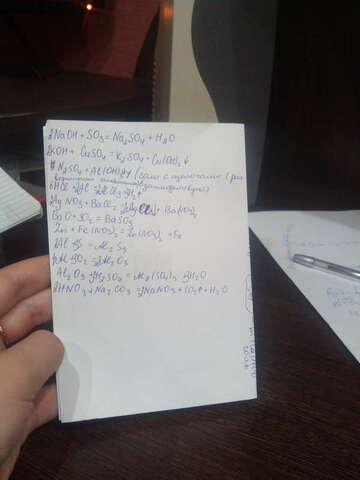 2NaOH + SO₃ = Na₂SO₄ + H₂O
2KOH + CuSO₄ = K₂SO₄ + Cu(OH)₂↓
Na₂SO₄ + Al(OH)₃ (соли с щелочами
6HCl + 2Al = 2AlCl₃ + 3H₂↑
2AgNO₃ + BaCl₂ = 2AgCl↓ + Ba(NO₃)₂
BaO + SO₂ = BaSO₃
Zn + Fe(NO₃)₂ = Zn(NO₃)₂ + Fe
2Al + 3S = Al₂S₃
4Al + 3O₂ = 2Al₂O₃
Al₂O₃ + 3H₂SO₄ = Al₂(SO₄)₃ + 3H₂O
2HNO₃ + Na₂CO₃ = 2NaNO₃ + CO₂↑ + H₂O